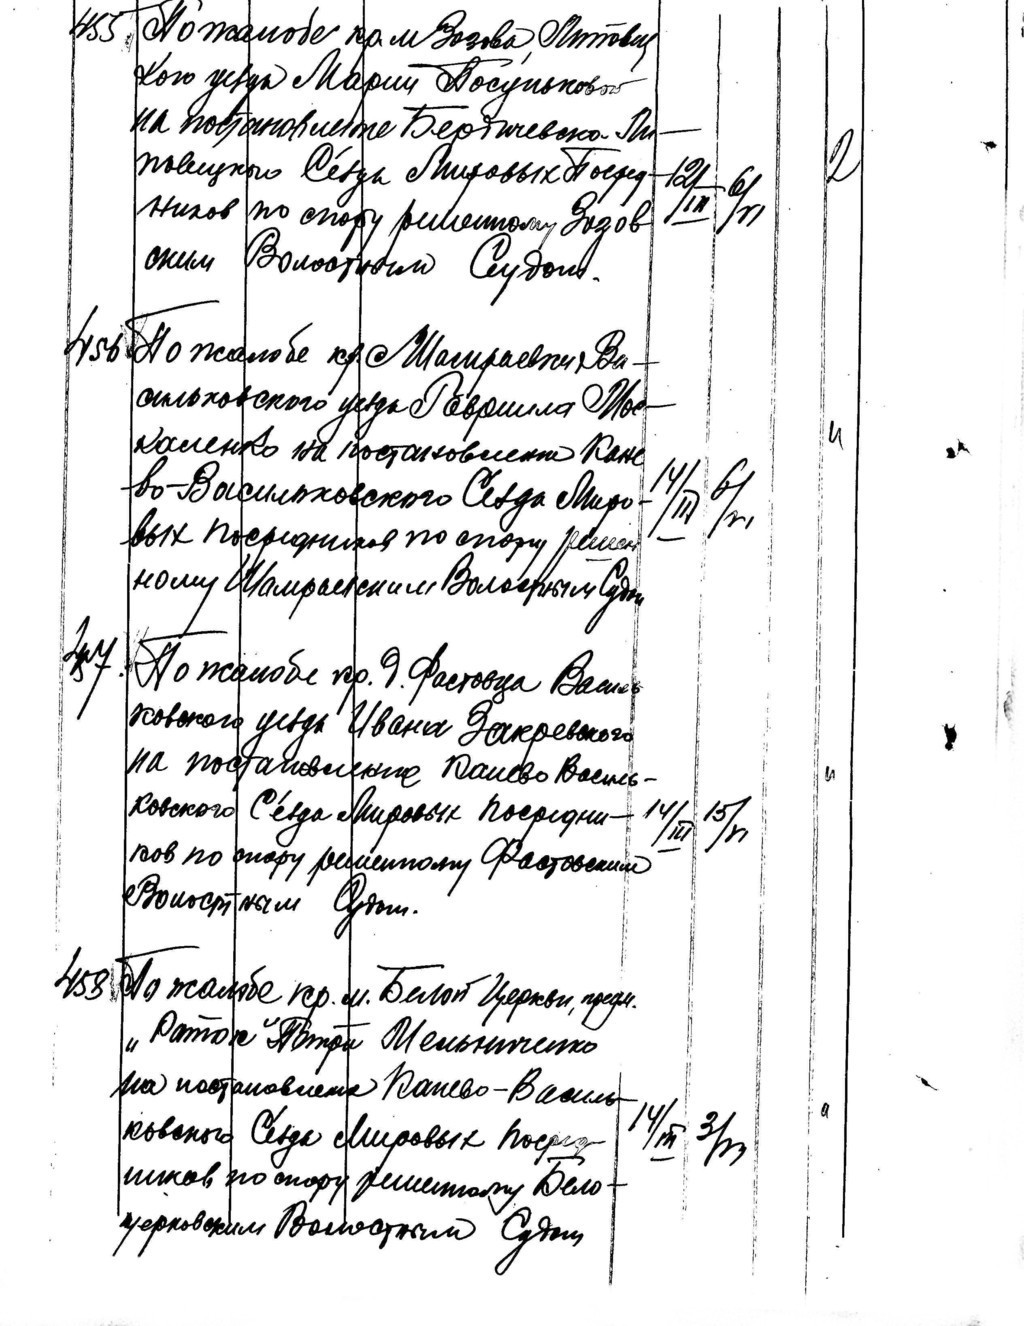 455. По жалобе кр. м. Зозова, Липовец
кого уезда Марии Посуньковой
на постановление Бердичевско-Ли-
повецкого Съезда Мировых Посред-
ников по спору решенному Зозов
ским Волостным Судом.
12/III 6/VI 2
456 По жалобе кр. с Шамраевки Ва-
сильковского уезда Гавриила Мос-
каленко на постановление Кане
во-Васильковского Съезда Миро-
вых посредников по спору решен
ному Шамраевским Волостным Судом
14/III 6/VI и
457. По жалобе кр. д. Фастовца Василь
ковского уезда Ивана Закревского
на постановление Канево Василь-
ковского Съезда Мировых посредни-
ков по спору решенному Фастовским
Волостным Судом.
14/III 15/VI и
458 По жалобе кр. м. Белой Церкви, предм.
„Раток" Петра Мельниченко
на постановление Канево-Василь-
ковского Съезда Мировых посред
ников по спору решенному Бело-
церковским Волостным Судом
14/III 3/VI